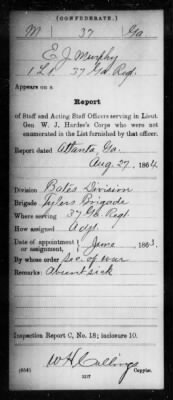 (CONFEDERATE.)
M 37 Ga
E. J. Murphy
1 Lt. 37 Ga. Reg.
Appears on a
Report
of Staff and Acting Staff Officers serving in Lieut.
Gen W. J. Hardee's Corps who were not
enumerated in the List furnished by that officer.
Report dated Atlanta, Ga.
Aug. 27, 1864.
Division Bate's Division
Brigade Tyler's Brigade
Where serving 37 Ga. Regt.
How assigned Adjt.
Date of appointment or assignment, June , 1863.
By whose order Sec. of War
Remarks: Absent sick
Inspection Report C, No. 18; inclosure 10.
W H Cullings
(654) Copyist.